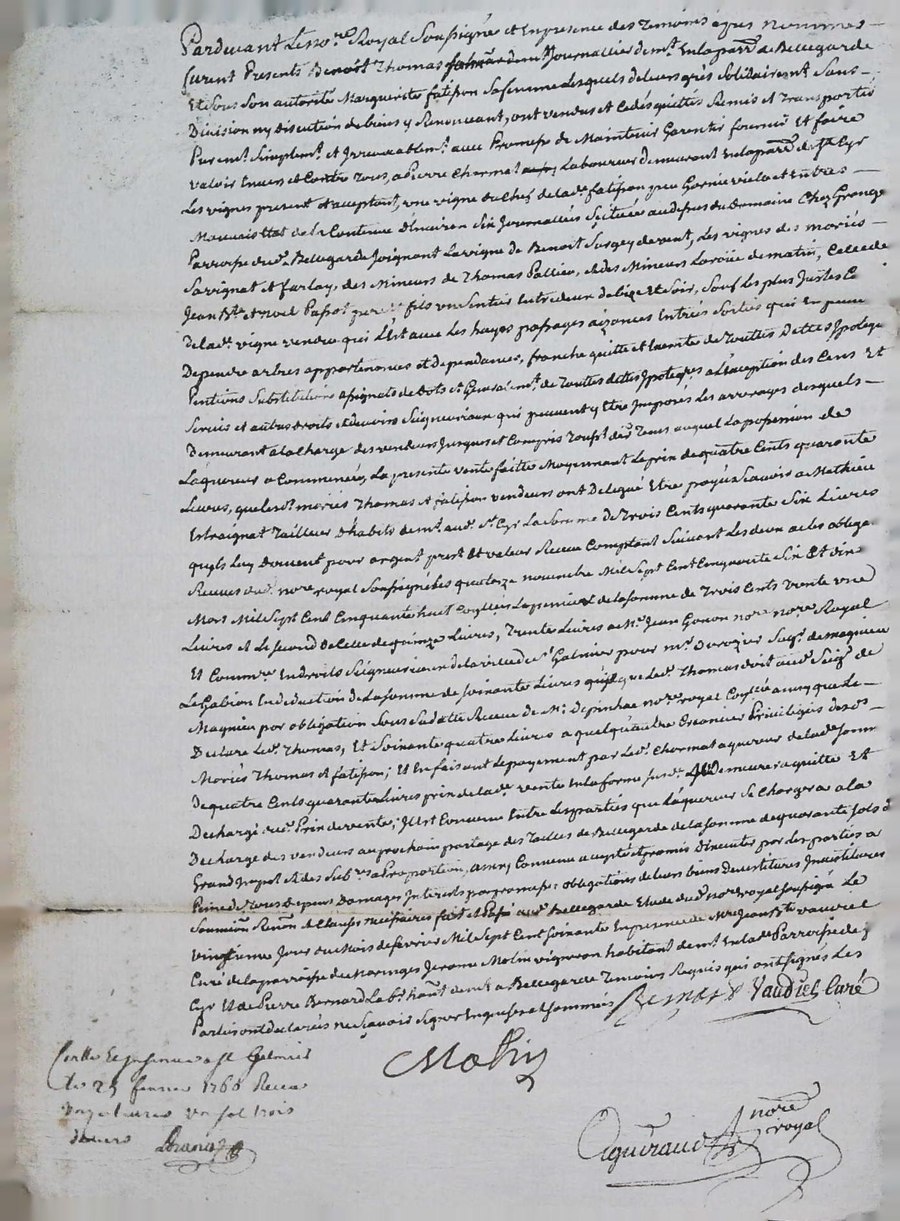 Pardevant Le no.re Royal Soussigné et En presence des Temoins apres nommés
furent Presents Benoit Thomas journallier dem.t En la parr.e de Bellegarde
Et Sous Son autorité Marguerite fatisson Sa femme Lesquels de leurs grés Solidairem.t Sans
Division ny discution de biens y Renonceant, ont vendus et Cedés quittés Remis et Transportés
Purem.t Simplem.t et Irrevocablem.t avec Promesse de Maintenir Garentir fournir Et faire
valoir Envers et Contre Tous, a Pierre Charmat Laboureur demeurant En la parr.e de S.t Cyr
Les vignes present et aceptant, une vigne du Chef de la d.e fatisson peu Garnie vielle et En tres
Mauvais Etat de la Contenue d'Environ Six Journallées Scituée au dessus du Domaine Chez Grange
Parroisse du d. Bellegarde Joignant La vigne de Benoit Surgey de vent, Les vignes des mariés
Savignat et farlay, des Mineurs de Thomas Pallien, et des Mineurs Laroüe de matin, Celle de
Jean B.te et Noel Passot pere et fils un Sentier Entre deux de bize Et Soir, Sauf les plus Justes C
De la d.e vigne vendue qui Est avec Les hayes passages aizances Entrées Sorties qui En peuv
Dependre arbres appartenances et dependances, franche quitte et Exempte de Touttes Dettes Ypoteqe
Pentions Substitutions assignats de Dots et Generalem.t de Toutes dettes Ypoteqes a L'Exception des Cens Et
Servis et autres droits et devoirs Seigneuriaux qui peuvent y Etre Imposés Les arrerages desquels
Demeurant a la Charge des vendeurs Jusques et Compris Tems auquel La possession de
L'aquereur a Commencée, La presente vente faitte Moyennant Le prix de quatre Cents quarante
Livres, que les d. mariés Thomas et fatisson vendeurs ont Delegué Etre payés Sçavoir a Mathieu
Estraignat Tailleur d'habits dem.t au d. S.t Cyr La Somme de Trois Cents quarante Six Livres
qu'ils Luy Doivent pour argent pret Et valeur Receue Comptant Suivant Les deux actes oblige
Receues du d. no.re royal Soussigné Les quatorze novembre Mil Sept Cent Cinquante Six Et dix
Mars Mil Sept Cent Cinquante huit La premiere de la Somme de Trois Cents Trente une
Livres et Le Second de Celle de quinze Livres, Trente Livres a M.e Jean Gonon no.re Royal
Et Comm.re En droits Seigneuriaux de la ville de S.t Galmier pour M.r Seig.r de magnieu
Le Gabion En deduction de la Somme de Soixante Livres que led. Thomas doit au d. Seig.r de
Magnieu par obligation Sous Sa datte Receue de M.e Depinhac no.re royal ainsy que Le
Declare Led. Thomas, Et Soixante quatre Livres a quelqu'autre Creancier Privilegié des d.
Mariés Thomas et fatisson; Et En faisant Le payement par Led. Charmat aquereur de la d.e Somme
De quatre Cents quarante Livres prix de la d.e vente En la forme Susd. Demeurera quitte Et
Dechargé du d. Prix de vente; Il Est Convenu Entre Les parties que L'aquereur Se Chargera a la
Decharge des vendeurs au prochain partage des Tailles de Bellegarde de la Somme de quarante Sols d
Grand Impot Et des Sub. a Proportion, ainsy Convenu accepté et promis D'Executer par Les parties a
Peine de Tous Depens Domages Interets par promesse: obligations de Leurs biens
Soumission Renon.on Et Clauses necessaires fait et Passé au d. Bellegarde Etude du d. no.re royal Soussigné Le
vingtieme Jour du Mois de fevrier Mil Sept Cent Soixante En presence de M.re Jean B.te vaudiel
Curé de la parroisse de Maringes Jerome Molin vigneron habitant dem.t En la d.e Parroisse de S.t
Cyr Et de Pierre Bernard dem.t a Bellegarde Temoins Requis qui ont Signés Les
Parties ont declarés ne Sçavoir Signer Enquises et Sommées
Bernard Vaudiel Curé
Molin
Conllé Et Insinué a St Galmier
le 25 fevrier 1760 Receu
livres un sol trois
deniers
Aguiraud no.re royal